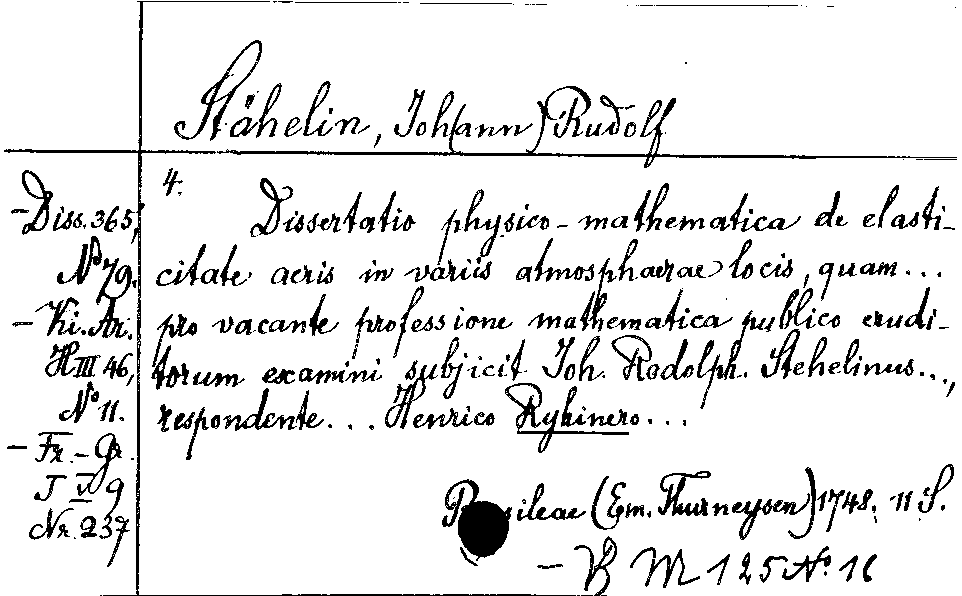 Stähelin, Joh(ann) Rudolf
4.
Dissertatio physico-mathematica de elasti-
citate aeris in variis atmosphaerae locis, quam...
pro vacante professione mathematica publico erudi-
torum examini subjicit Joh. Rodolph. Stehelinus...,
respondente... Henrico Ryhinero...
Basileae (Em. Thurneysen) 1748. 11 S.
- B M 125 No. 16
- Diss. 365,
No 79.
- Ki. Ar.
H III 46,
No 11.
- Fr.-Gr.
J V 9
Nr. 237